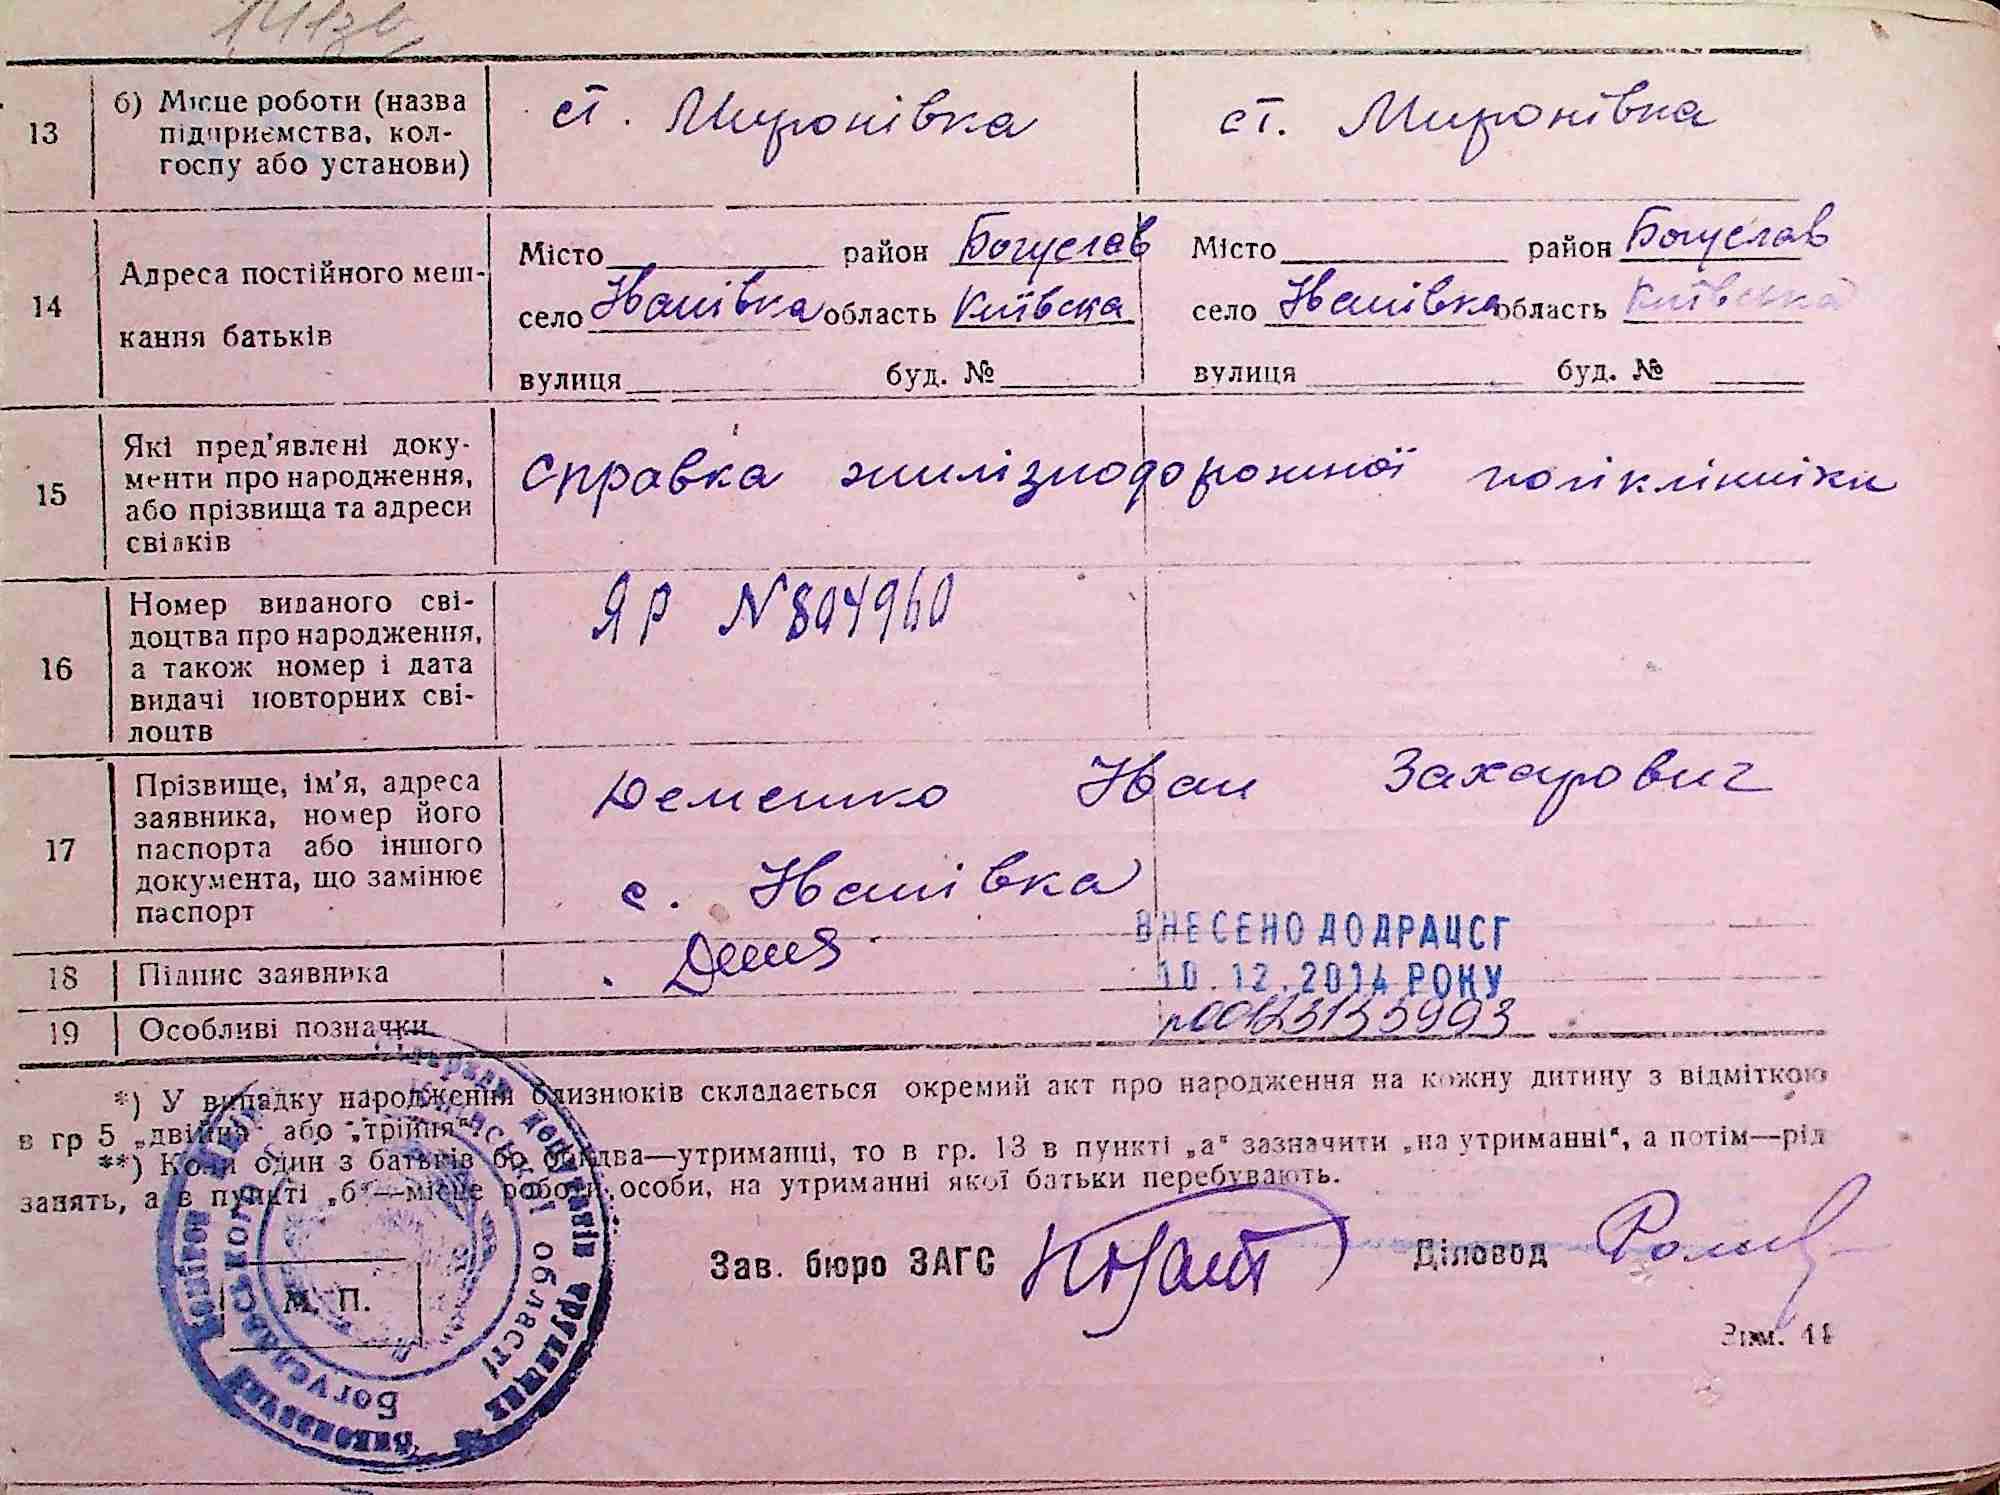 13
б) Місце роботи (назва
підприємства, кол-
госпу або установи)
ст. Миронівка
ст. Миронівка
14
Адреса постійного меш-
кання батьків
Місто район Богуслав
село Іванівка область Київська
вулиця буд. №
Місто район Богуслав
село Іванівка область Київська
вулиця буд. №
15
Які пред'явлені доку-
менти про народження,
або прізвища та адреси
свідків
справка жилізнодорожної поліклініки
16
Номер виданого сві-
доцтва про народження,
а також номер і дата
видачі повторних сві-
доцтв
ЯР N 804960
17
Прізвище, ім'я, адреса
заявника, номер його
паспорта або іншого
документа, що замінює
паспорт
Деменко Іван Захарович
с. Іванівка
18
Підпис заявника
ВНЕСЕНО ДО ДРАЦСГ
10.12.2014 РОКУ
19
Особливі позначки
*) У випадку народження близнюків складається окремий акт про народження на кожну дитину з відміткою
в гр 5 „двійня" або „трійня".
**) Коли один з батьків бо обидва—утриманці, то в гр. 13 в пункті „а" зазначити „на утриманні", а потім—рід
занять, а в пункті „б"—місце роботи особи, на утриманні якої батьки перебувають.
Зав. бюро ЗАГС
Діловод
М. П.